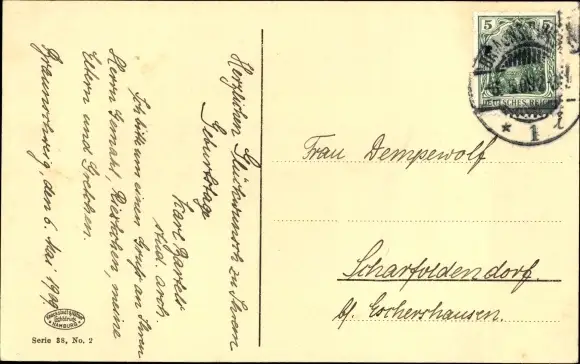 Herzlichen Glückwunsch zu Ihrem
Geburtstage
Karl Bartels
stud. arch.
Ich bitte um einen Gruß an Ihren
Herrn Gemahl, meine
Eltern und Gretchen.
Braunschweig, den 6. Mai
Serie 38, No. 2
HAMBURG
5 5
DEUTSCHES REICH
* 1
Frau Dempewolf
Scharfoldendorf
b/ Eschershausen.